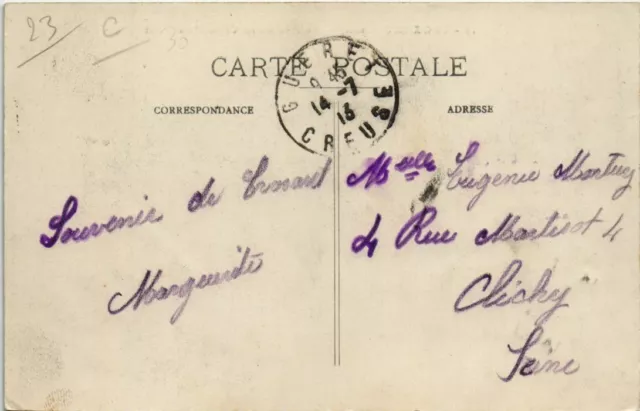 23 C
CARTE POSTALE
GUERET
9 45
14 - 7
13
CREUSE
CORRESPONDANCE
ADRESSE
Souvenir de
Marguerite
Melle Eugénie
4 Rue Martissot 4
Clichy
Seine